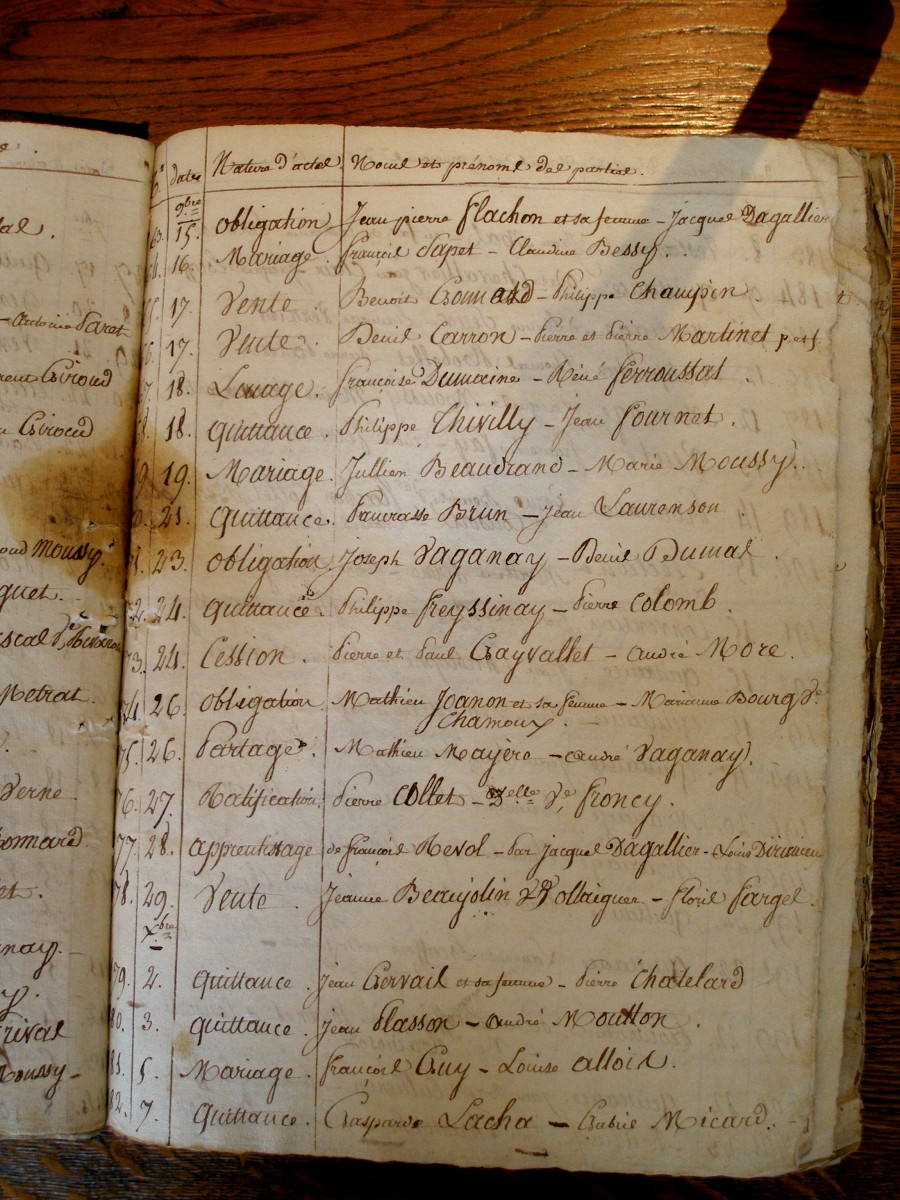 dates Nature d'actes Noms et prénoms des parties.
9bre
15. obligation Jean pierre flachon et sa femme - Jacques Dagallier
16. Mariage. françois Sapet - Claudine Bessy.
17. Vente. Benoit - Philippe Champin
17. Vente. Denis Carron - Pierre et Pierre Martinet
18. Louage. françoise Dumaine - Réné ferroussat
18. quittance. Philippe Thivilly - Jean fournet.
19. Mariage. Jullien Beaudrand - Marie Moussy.
21. quittance. Pancrasse Brun - Jean Laurenson
23. obligation Joseph Vaganay - Denis Dumas.
72. 24. quittance. Philippe freyssinay - Pierre Colomb.
73. 24. Cession. Pierre et Paul Gayvallet - andré More.
74. 26. obligation Mathieu Joanon et sa femme - Marianne Bourg Ve
Chamoux.
75. 26. Partage. Mathieu Mayere - andré Vaganay.
76. 27. Ratification. Pierre Collet - Delle Ve froncy.
77. 28. apprentissage de françois Revol - Par Jacques Dagallier - Louis
78. 29. Vente. Jeanne Beaujolin - floris fargel.
Xbre
79. 2. quittance. Jean Gervais et sa femme - Pierre Chatelard
80. 3. quittance. Jean Plasson - andré Moutton.
81. 5. Mariage. françois Guy - Louise allois.
82. 7. quittance. Gasparde Lacha - Gabriel Micard.
Antoine Parat
Giroud
Giroud
Moussy.
Metrat.
Verne
Bonnard.
Moussy